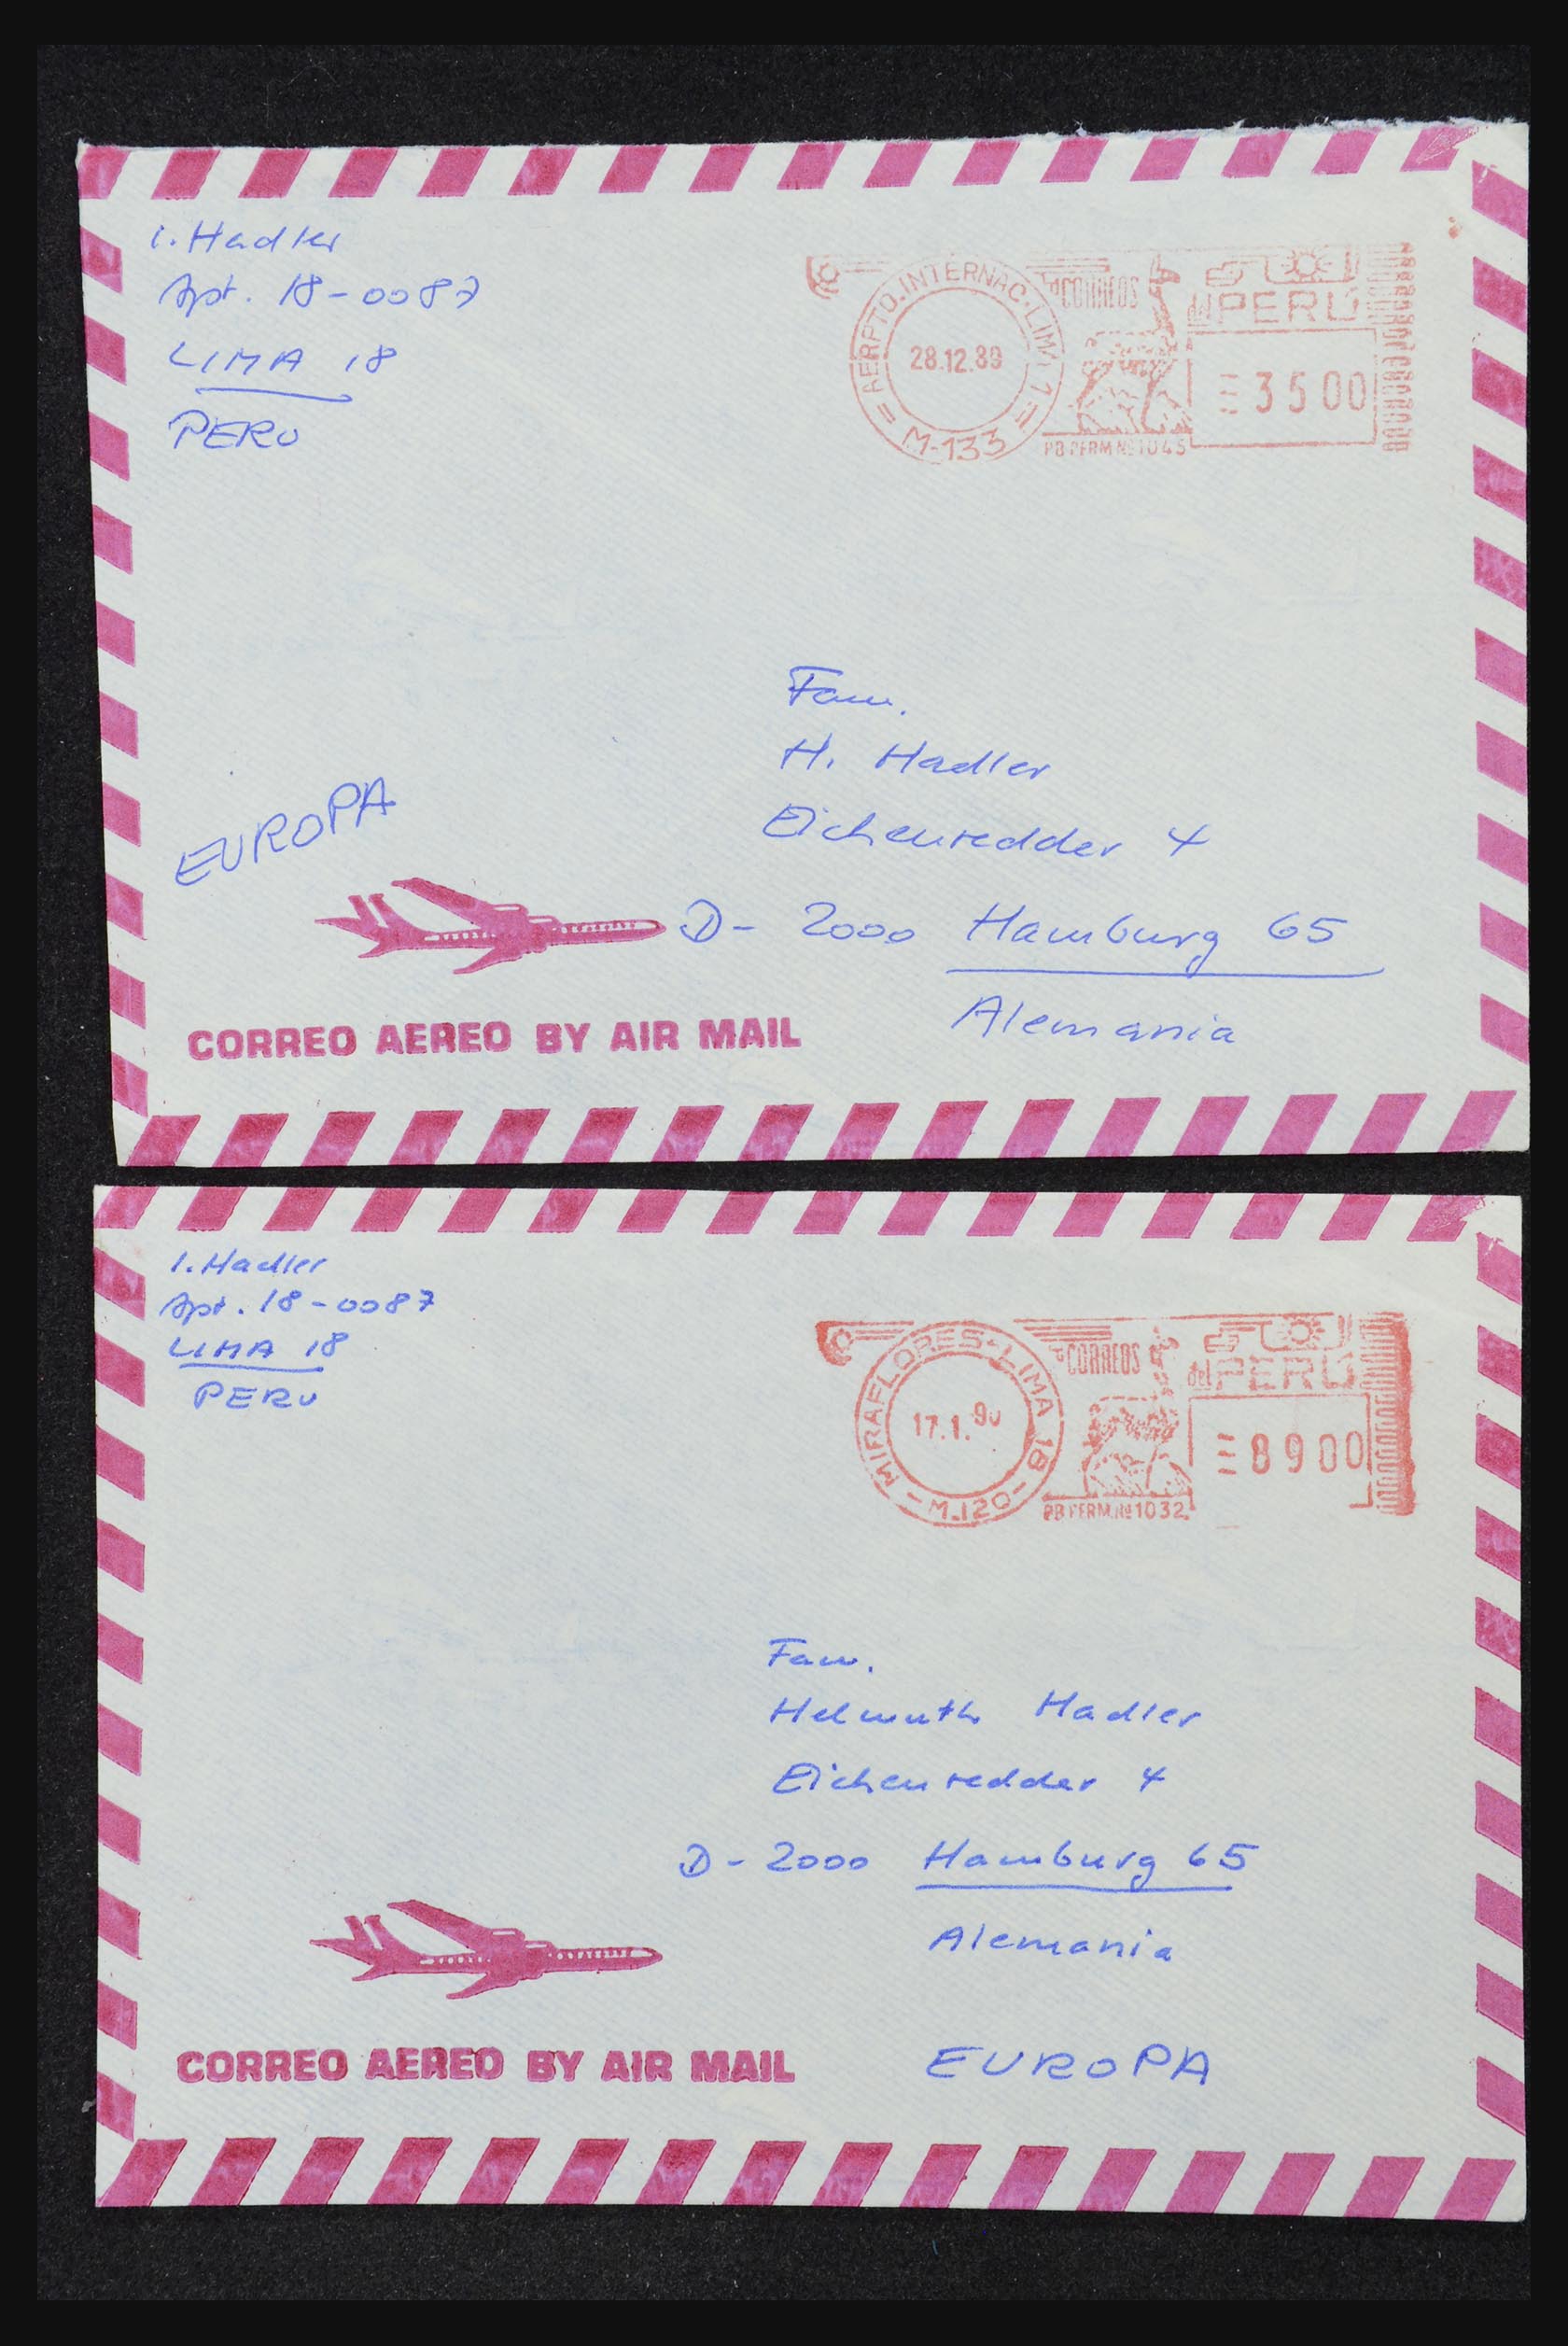 I. Hadler
Apt. 18-0087
LIMA 18
PERU
AERPTO. INTERNAC. LIMA 1
28.12.89
M-133
CORREOS
del PERU
PB PERM Nº 1045
3500
EUROPA
Fam.
H. Hadler
Eichenredder 4
D- 2000 Hamburg 65
Alemania
CORREO AEREO BY AIR MAIL
I. Hadler
Apt. 18-0087
LIMA 18
PERU
MIRAFLORES-LIMA 18
17.1.90
M.120
CORREOS
del PERU
PB PERM. Nº 1032
8900
Fam.
Helmuth Hadler
Eichenredder 4
D- 2000 Hamburg 65
Alemania
EUROPA
CORREO AEREO BY AIR MAIL